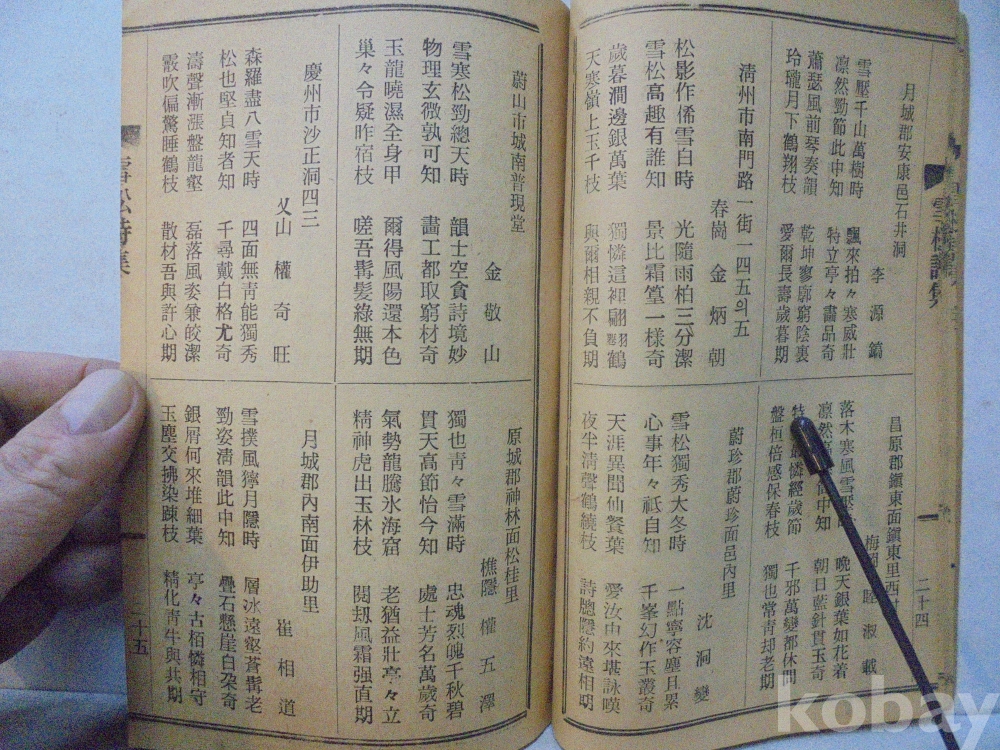 月城郡安康邑石井洞
李源鎬
雪壓千山萬樹時 飄來拍々寒威壯
凛然勁節此中知 特立亭々畵品奇
蕭瑟風前琴奏韻 乾坤寥廓窮陰裏
玲瓏月下鶴翔枝 愛爾長壽歲暮期
淸州市南門路一街一四五의五
春崗 金炳朝
松影作俙雪白時 光隨雨柏三分潔
雪松高趣有誰知 景比霜篁一樣奇
歲暮澗邊銀萬葉 獨憐這裡翩翩鶴
天寒嶺上玉千枝 與爾相親不負期
昌原郡鎭東面鎭東里西
淑載
落木寒風雪 晚天銀葉如花着
凛然 中知 朝日藍針貫玉奇
憐經歲節 千邪萬變都休問
盤桓倍感保春枝 獨也常靑却老期
蔚珍郡蔚珍面邑內里
沈洞燮
雪松獨秀大冬時 一點寧容塵且累
心事年々祗自知 千峯幻作玉叢奇
天涯異聞仙餐葉 愛汝由來堪詠嘆
夜半淸聲鶴繞枝 詩牕隱約遠相期
二十四
蔚山市城南普現堂
金敬山
雪寒松勁總天時 韻士空貪詩境妙
物理玄微孰可知 畵工都取窮材奇
玉龍曉濕全身甲 爾得風陽還本色
巢々令疑昨宿枝 嗟吾髯髮綠無期
慶州市沙正洞四三
山 權奇旺
森羅盡入雪天時 四面無靑能獨秀
松也堅貞知者知 千尋戴白格尤奇
濤聲漸漲盤龍壑 磊落風姿兼皎潔
霰吹偏驚睡鶴枝 散材吾與許心期
原城郡神林面松桂里
樵隱 權五澤
獨也靑々雪滿時 忠魂烈魄千秋碧
貫天高節怡今知 處士芳名萬歲奇
氣勢龍騰氷海窟 老猶益壯亭々立
精神虎出玉林枝 閱刼風霜强直期
月城郡內南面伊助里
崔相道
雪撲風獰月隱時 層冰遠壑蒼髯老
勁姿淸韻此中知 疊石懸崖白朶奇
銀屑何來堆細葉 亭々古栢憐相守
玉塵交拂染疎枝 精化靑牛與共期
雪松詩集
二十五
kobay